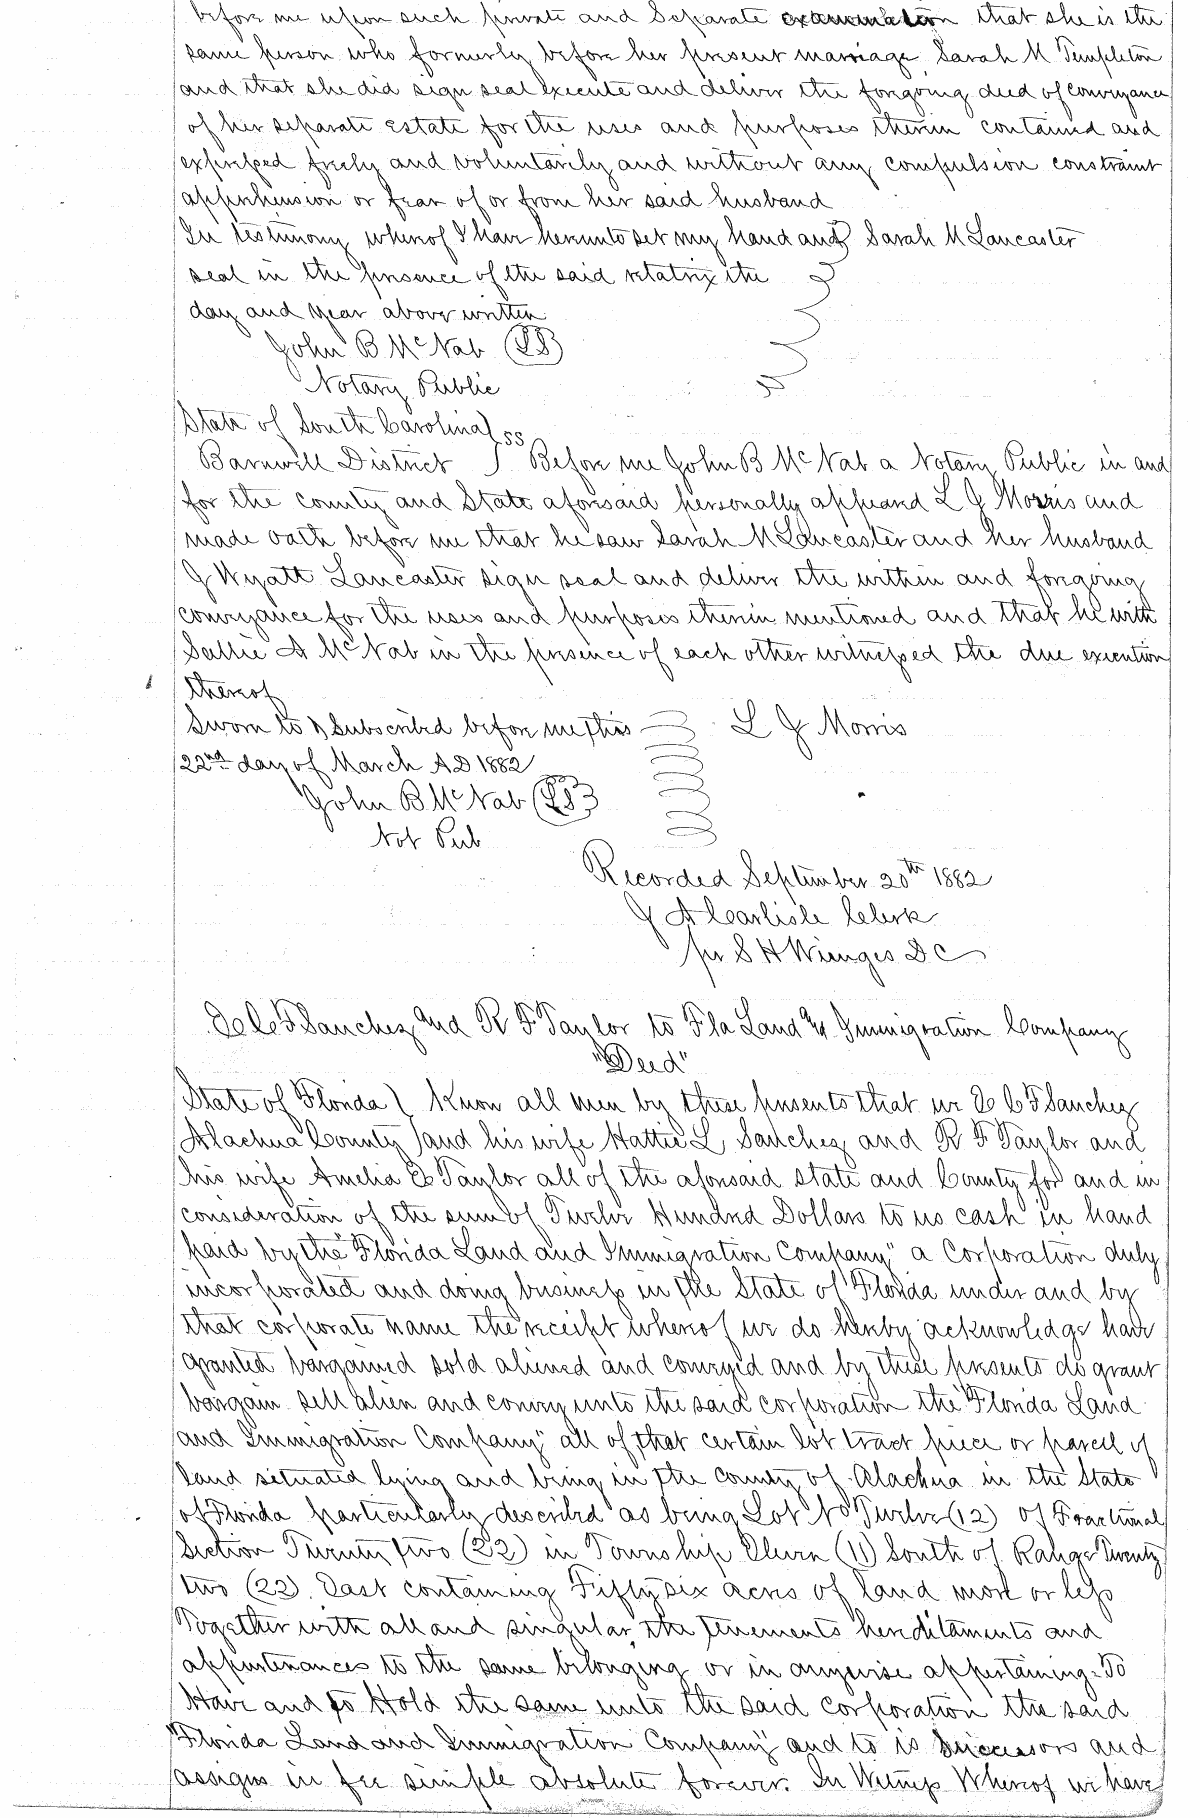 before me upon such private and Separate examination that she is the
same person who formerly before her present marriage Sarah M Templeton
and that she did sign seal execute and deliver the forgoing deed of conveyance
of her separate Estate for the uses and purposes therein contained and
expressed freely and voluntarily and without any compulsion constraint
apprehension or fear of or from her said husband
In testimony whereof I have hereunto set my hand and Sarah M Lancaster
seal in the presence of the said relatrix the
day and year above written
John B McNab (LS)
Notary Public
State of South Carolina
Barnwell District ss Before me John B McNab a Notary Public in and
for the county and State aforesaid personally appeared L J Morris and
made oath before me that he saw Sarah M Lancaster and her husband
J Wyatt Lancaster sign seal and deliver the within and forgoing
conveyance for the uses and purposes therein mentioned and that he with
Sallie A McNab in the presence of each other witnessed the due execution
thereof
Sworn to & Subscribed before me this L J Morris
22nd day of March AD 1882
John B McNab (LS)
Not Pub
Recorded September 20th 1882
J A Carlisle Clerk
per S H Wienges DC
E C F Sanchez and R F Taylor to Fla Land & Immigration Company
"Deed"
State of Florida Know all men by these presents that we E C F Sanchez
Alachua County and his wife Hattie L Sanchez and R F Taylor and
his wife Amelia E Taylor all of the aforesaid state and County for and in
consideration of the sum of Twelve Hundred Dollars to us cash in hand
paid by the "Florida Land and Immigration Company" a Corporation duly
incorporated and doing business in the State of Florida under and by
that corporate name the receipt whereof we do hereby acknowledge have
granted bargained sold aliened and conveyed and by these presents do grant
bargain sell alien and convey unto the said corporation the "Florida Land
and Immigration Company" all of that certain lot tract piece or parcell of
land situated lying and being in the county of Alachua in the State
of Florida particularly described as being Lot No Twelve (12) of Fractional
Section Twenty two (22) in Township Eleven (11) South of Range Twenty
two (22) East containing Fifty six acres of land more or less
Together with all and singular the tenements hereditaments and
appurtenances to the same belonging or in anywise appertaining. To
Have and to Hold the same unto the said corporation the said
"Florida Land and Immigration Company" and to is successors and
assigns in fee simple absolute forever. In Witness Whereof we have